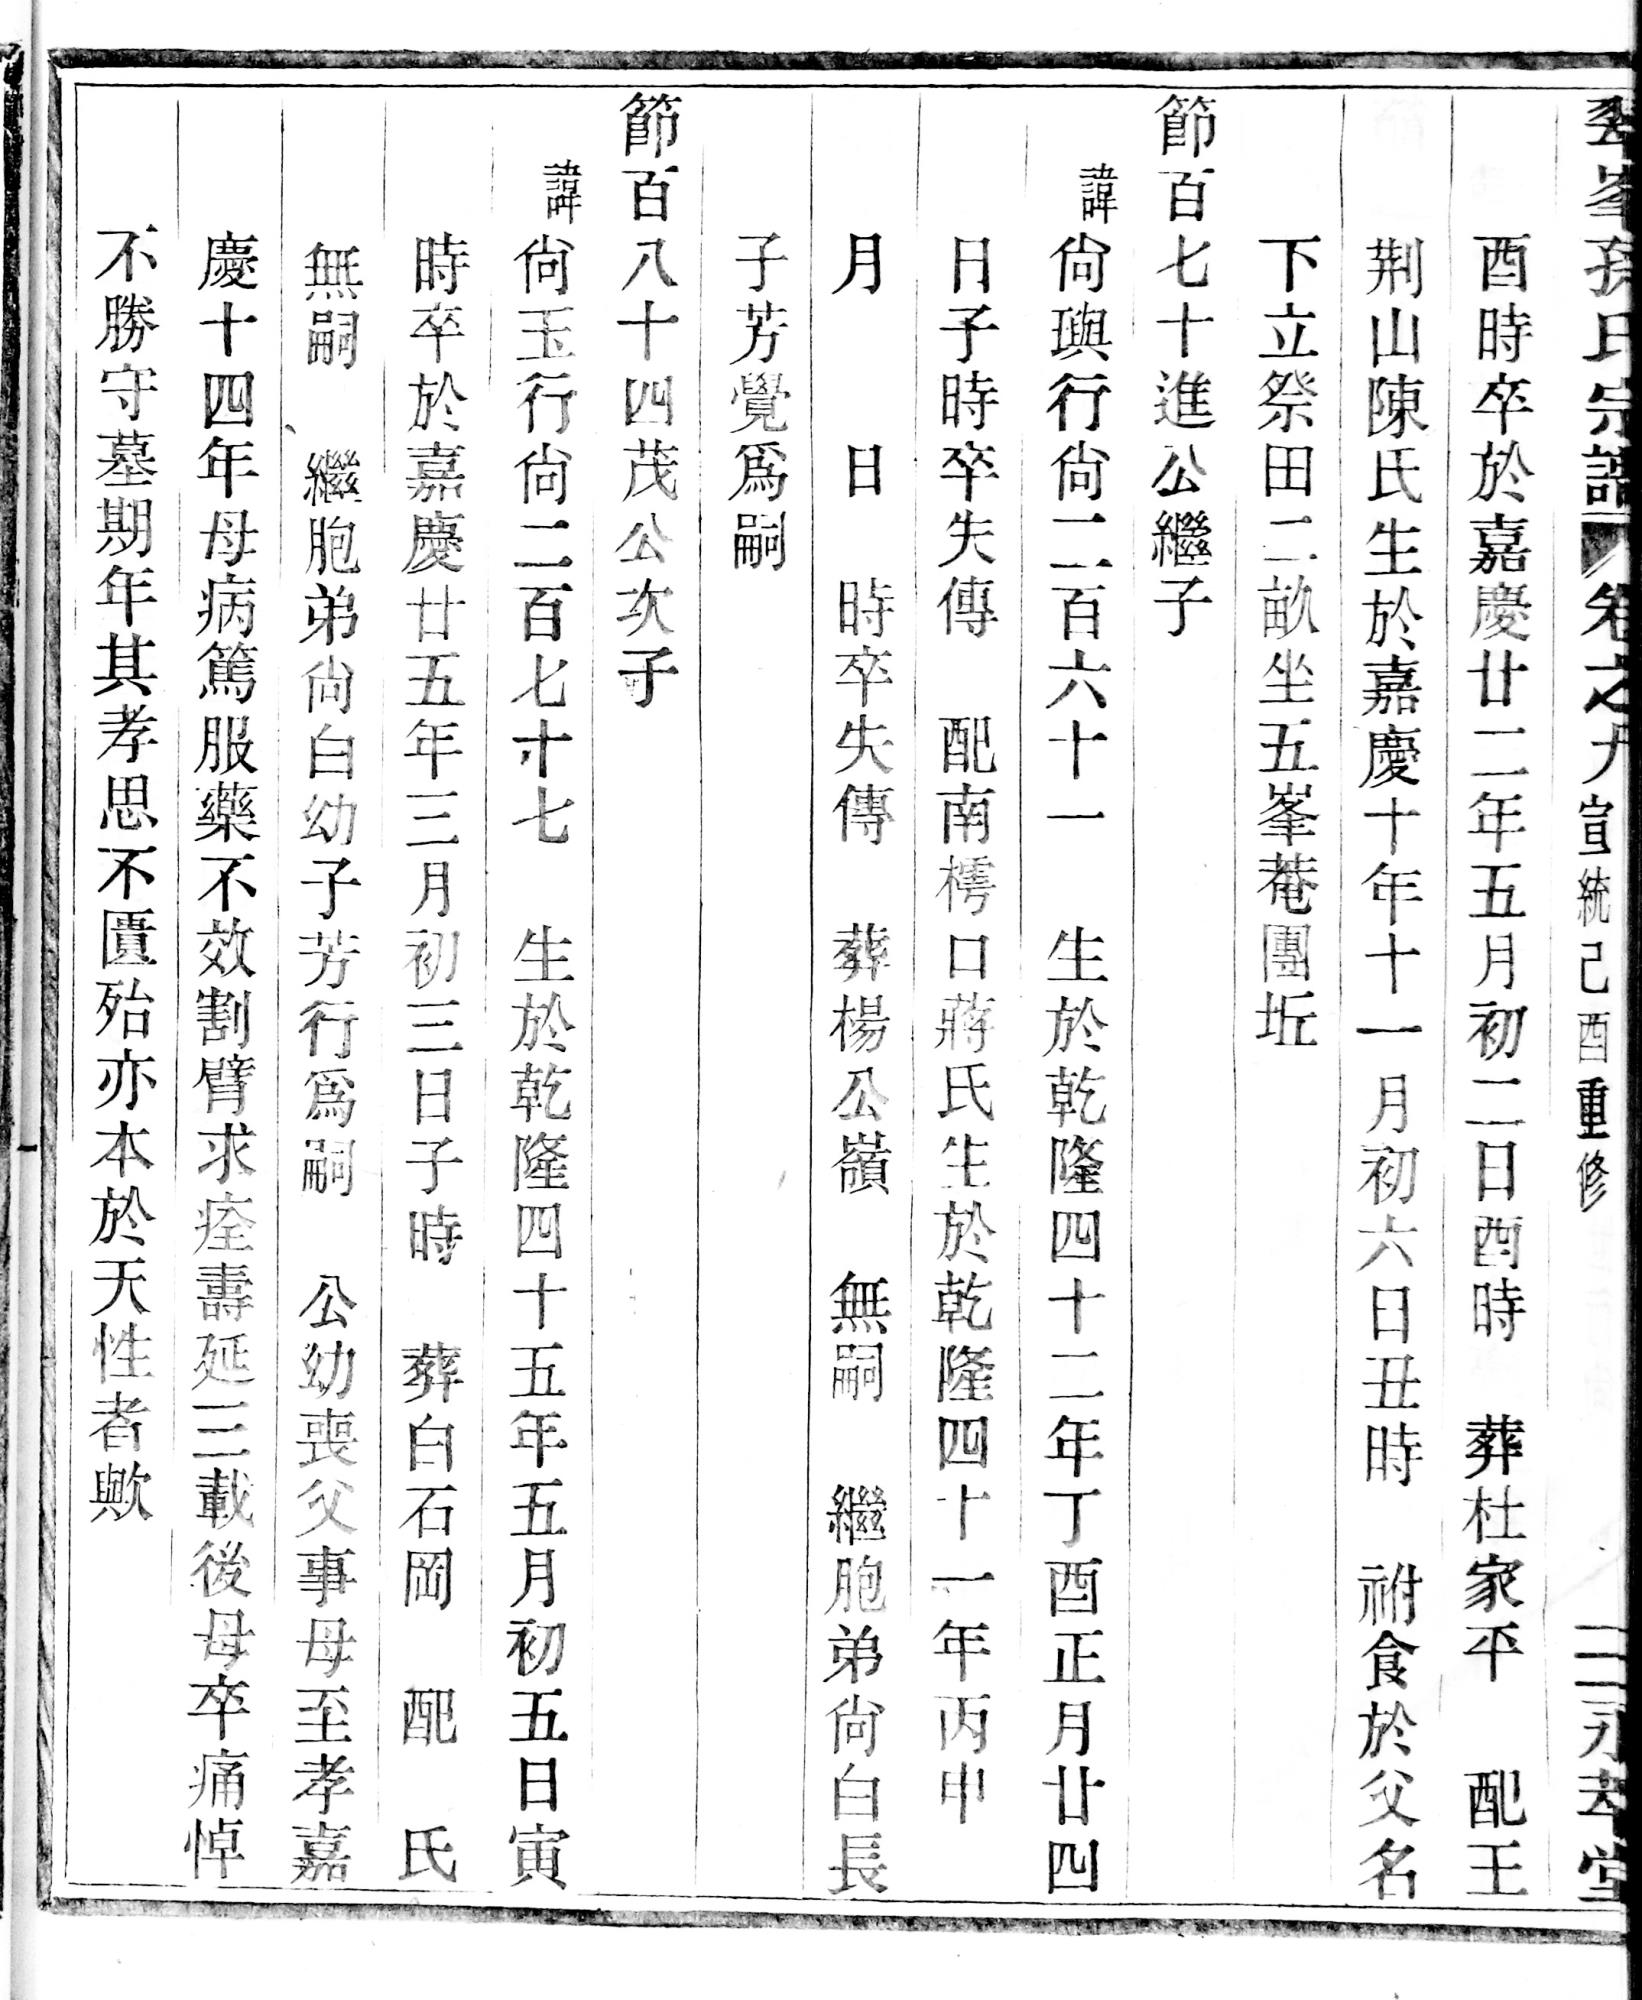 翠峯孫氏宗譜 卷之九 宣統己酉重修 二 永孝堂
酉時卒於嘉慶廿二年五月初二日酉時 葬杜家平 配王
荆山陳氏生於嘉慶十年十一月初六日丑時 祔食於父名
下立祭田二畝坐五峯菴團坵
節百七十進公繼子
諱尙璵行尙二百六十一 生於乾隆四十二年丁酉正月廿四
日子時卒失傳 配南樗口蔣氏生於乾隆四十一年丙申
月 日 時卒失傳 葬楊公嶺 無嗣 繼胞弟尙白長
子芳覺爲嗣
節百八十四茂公次子
諱尙玉行尙二百七十七 生於乾隆四十五年五月初五日寅
時卒於嘉慶廿五年三月初三日子時 葬白石岡 配 氏
無嗣 繼胞弟尙白幼子芳行爲嗣 公幼喪父事母至孝嘉
慶十四年母病篤服藥不效割臂求痊壽延三載後母卒痛悼
不勝守墓期年其孝思不匱殆亦本於天性者歟